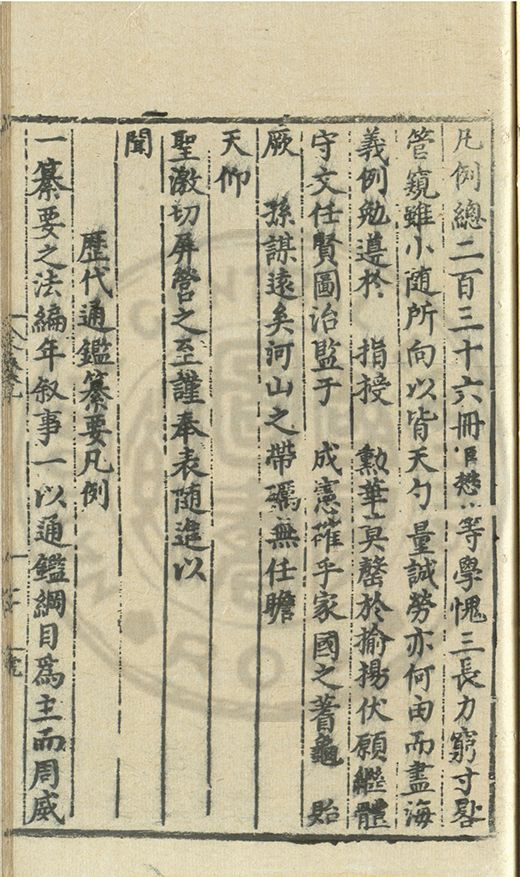 凡例總二百三十六冊臣懋等學愧三長力窮寸晷
管窺雖小隨所向以皆天勺量誠勞亦何由而盡海
義例勉遵於 指授 勲華莫罄於揄揚伏願繼體
守文任賢圖治監于 成憲確乎家國之蓍龜 貽
厥 孫謀遠矣河山之帶礪無任瞻
天仰
聖激切屏營之至謹奉表隨進以
聞
歷代通鑑纂要凡例
一纂要之法編年叙事一以通鑑綱目爲主而周威